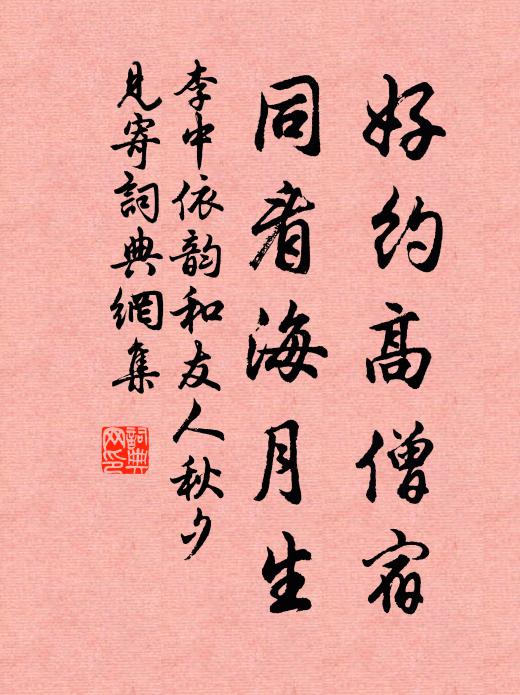 好约高僧宿
同看海月生
李中依韵和友人秋夕
见寄词典網集
詞典
网印